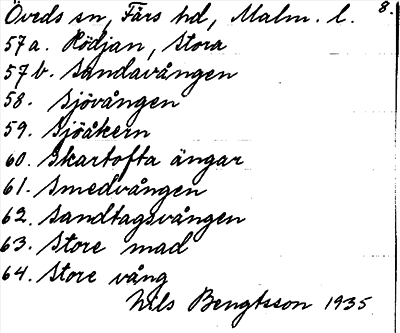 Öveds sn, Färs hd, Malm. l. 8.
57a. Rödjan, Stora
57b. Sandavången
58. Sjövången
59. Sjöåkern
60. Skartofta ängar
61. Smedvången
62. Sandtagsvången
63. Store mad
64. Store vång
Nils Bengtsson 1935